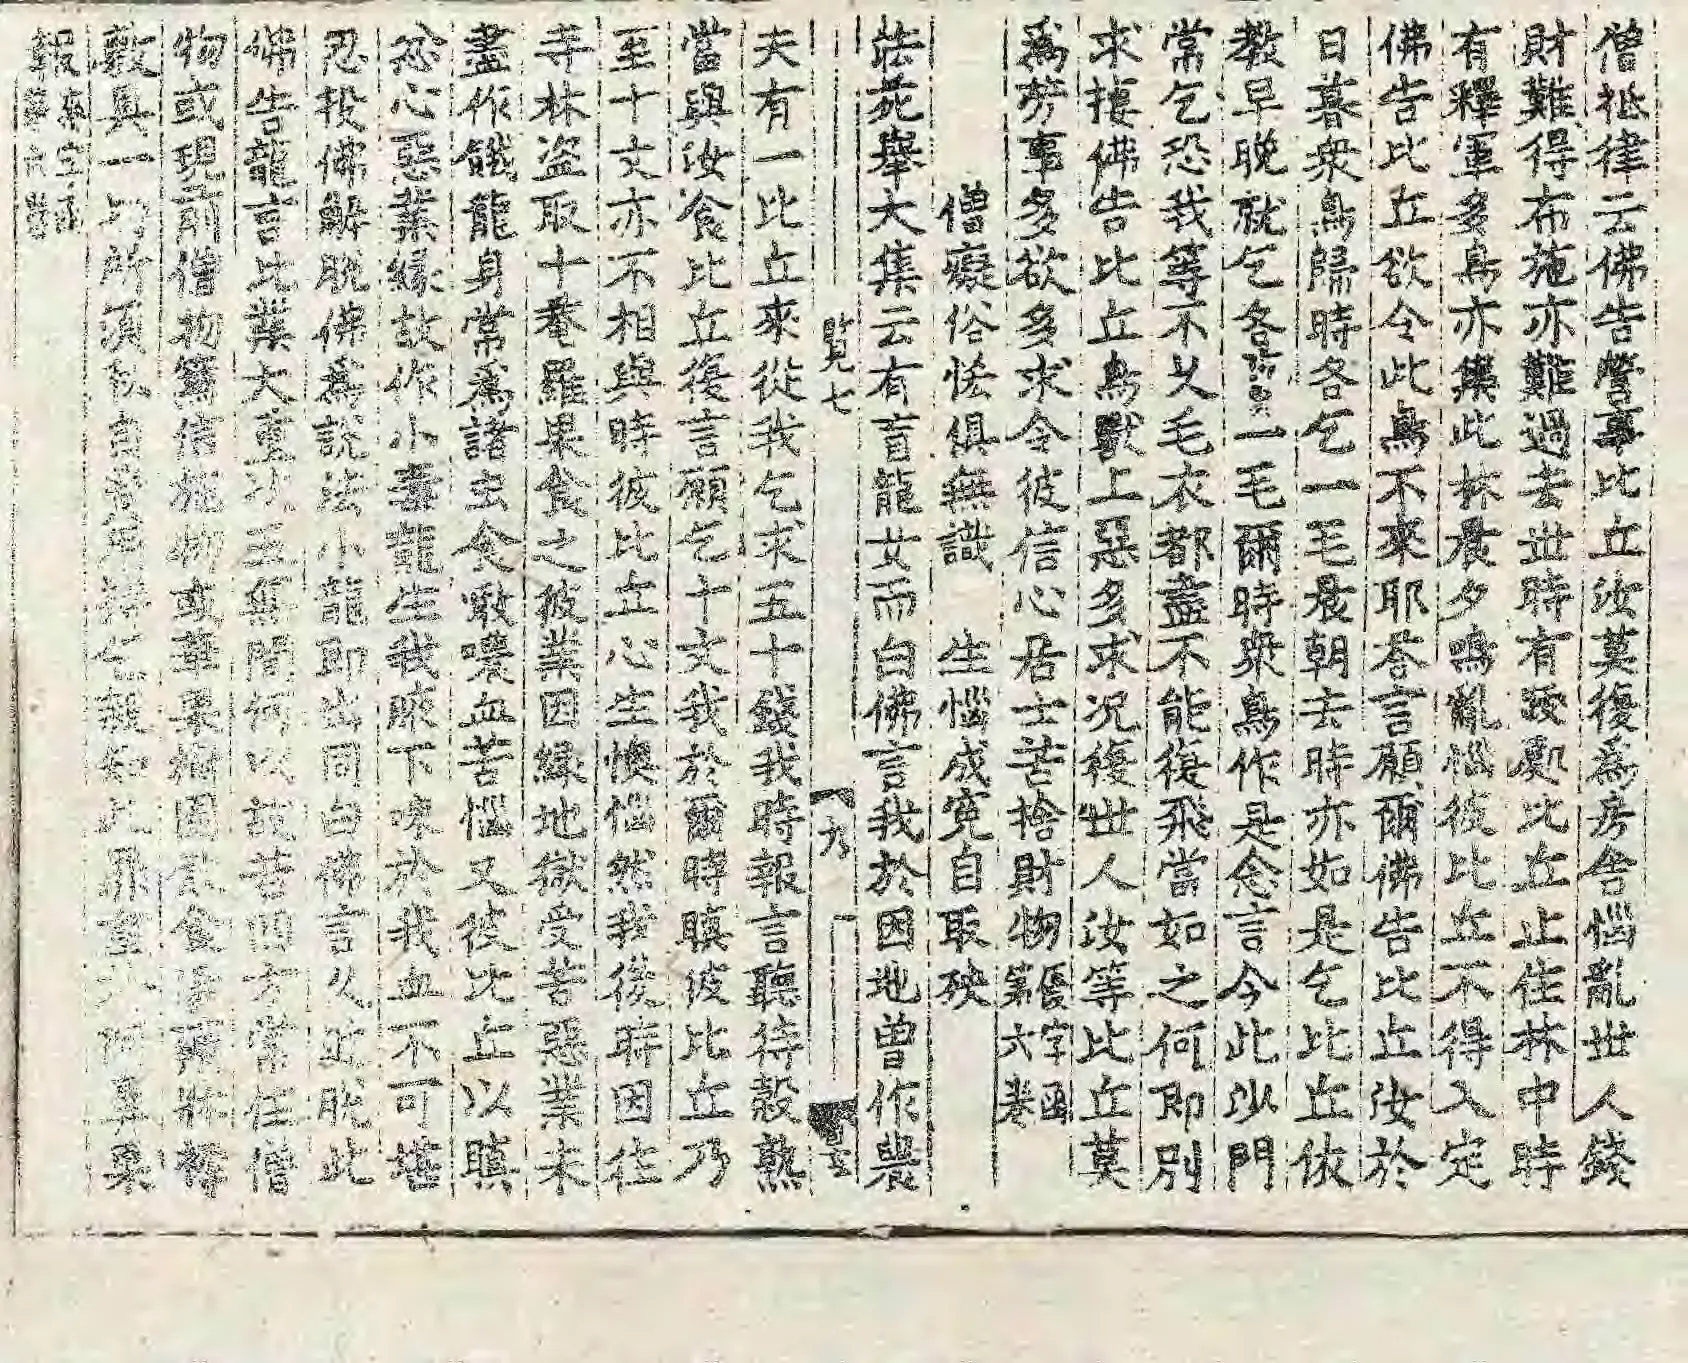 僧祇律云佛告營事比丘汝莫復爲房舍惱亂世人錢
財難得布施亦難過去世時有一處比丘止住林中時
有釋軍多鳥亦集此林晨夕鳴亂惱彼比丘不得入定
佛告比丘欲令此鳥不來耶荅言願爾佛告比丘汝於
日暮衆鳥歸時各乞一毛晨朝去時亦如是乞比丘依
教早晚就乞各一毛爾時衆鳥作是念言今此沙門
常乞恐我等不久毛衣都盡不能復飛當如之何即別
求捿佛告比丘鳥獸上惡多求况復世人汝等比丘莫
爲勞事多欲多求令彼信心居士苦捨財物第六
僧癡俗恡俱無識 生惱成寃自取殃
法苑舉大集云有盲龍女而白佛言我於因地曾作農
覧七 九
夫有一比丘來從我乞求五十錢我時報言聽待穀熟
當與汝食比丘復言願乞十文我於爾時瞋彼比丘乃
至十文亦不相與時彼比丘心生懊惱然我後時因往
寺林盗取十菴羅果食之彼業因緣地獄受苦惡業未
盡作餓龍身常爲諸虫食噉噥血苦惱又彼比丘以瞋
忿心惡業緣故作小毒龍生我腋下唼於我血不可堪
忍投佛解脫佛爲說法小龍即出同白佛言久近脫此
佛告龍言此業大重次五無間何以故若四方常住僧
物或現前僧物篤信施物或華果樹園飲食床褥
敷具一切所須私自費用持乞親知此罪重於阿鼻果
報